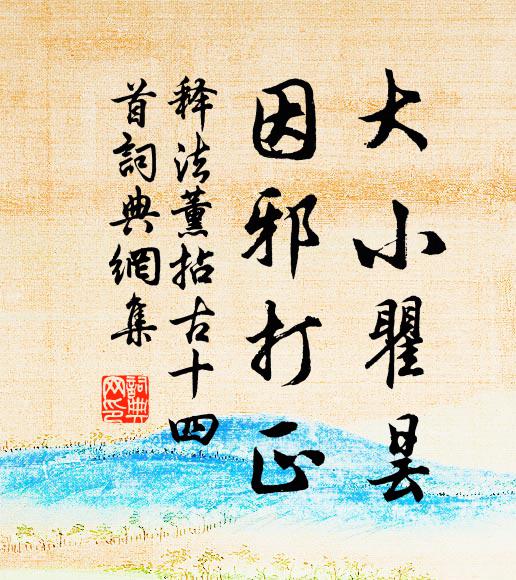 大小瞿昙
因邪打正
释法薰拈古十四
首詞典網集
詞典
网印